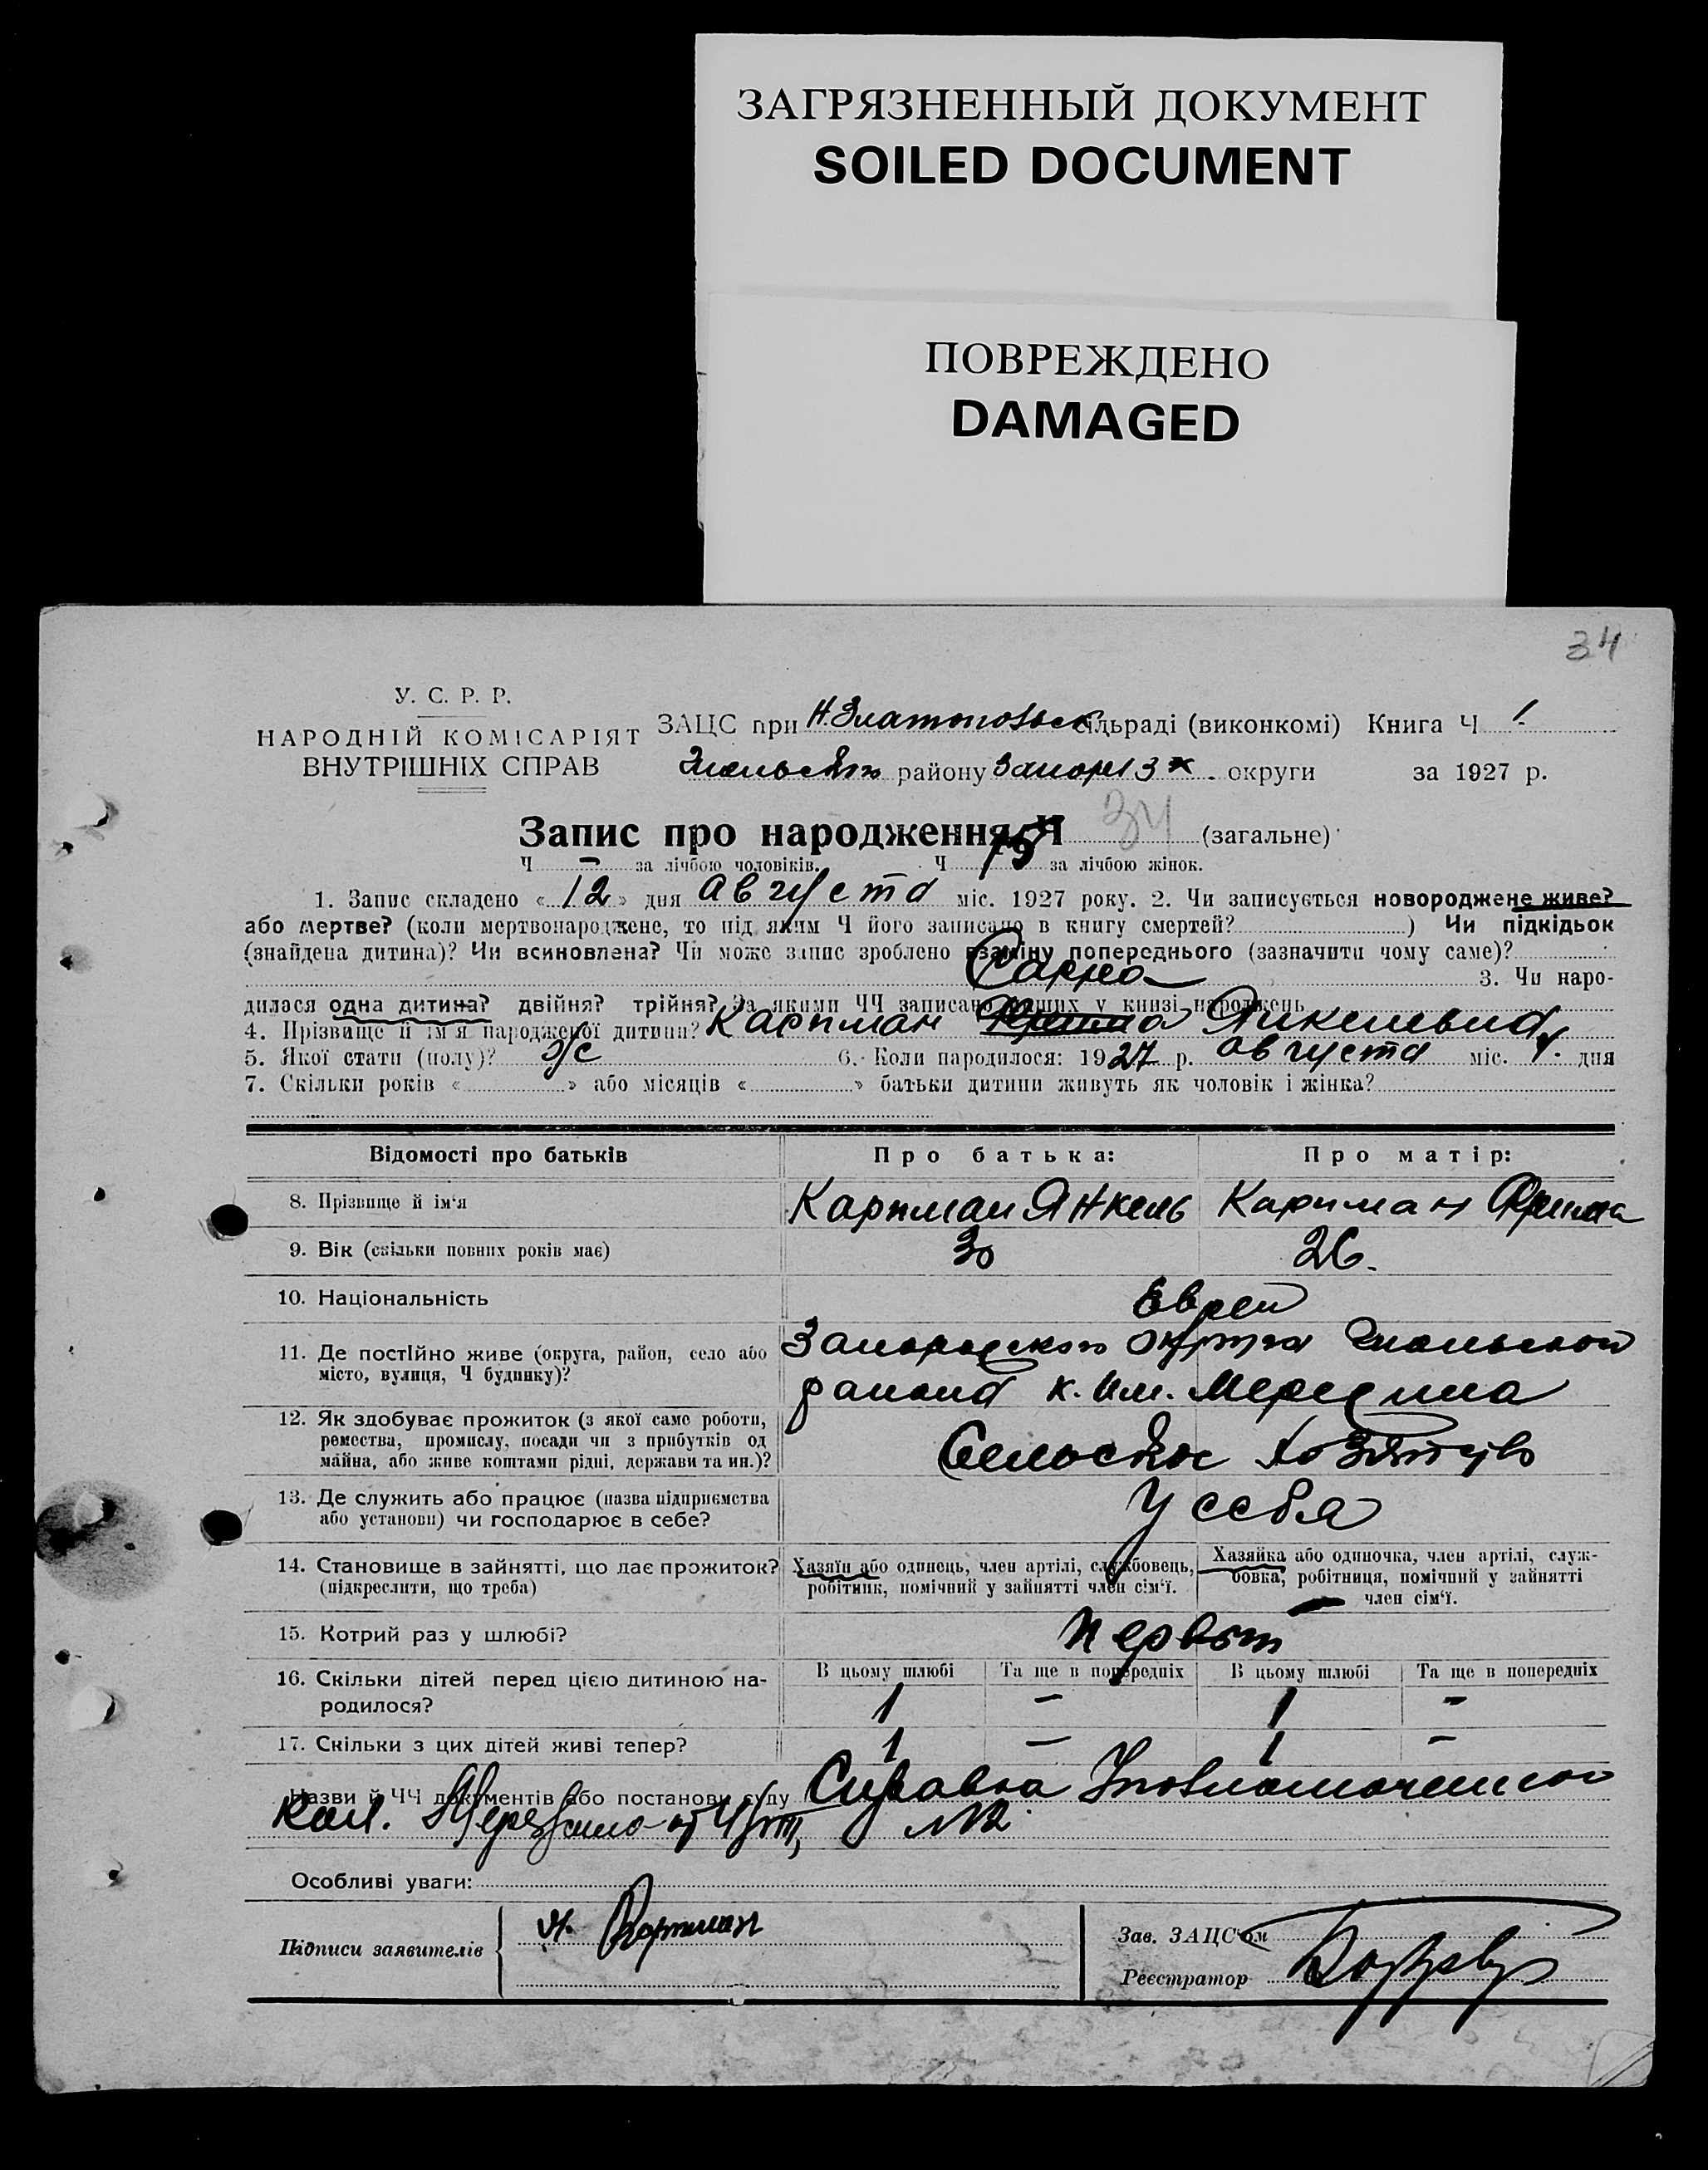 ЗАГРЯЗНЕННЫЙ ДОКУМЕНТ
SOILED DOCUMENT
ПОВРЕЖДЕНО
DAMAGED
34
У. С. Р. Р.
НАРОДНІЙ КОМІСАРІЯТ
ВНУТРІШНІХ СПРАВ
ЗАЦС при Н. Златопольск сільраді (виконкомі) Книга Ч 1
району округи за 1927 р.
Запис про народження Ч 34 (загальне)
Ч – за лічбою чоловіків. Ч 15 за лічбою жінок.
1. Запис складено « 12 » дня августа міс. 1927 року. 2. Чи записується новороджене живе?
або мертве? (коли мертвонароджене, то під яким Ч його записано в книгу смертей? ) Чи підкідьок
(знайдена дитина)? Чи всиновлена? Чи може запис зроблено взаміну попереднього (зазначити чому саме)?
Сарра
3. Чи наро-
дилася одна дитина? двійня? трійня? За якими ЧЧ записано інших у книзі народжень
4. Прізвище й ім'я народженої дитини? Карпман Янкелевна
5. Якої стати (полу)? ж/с 6. Коли народилося: 1927 р. августа міс. 4. дня
7. Скільки років « » або місяців « » батьки дитини живуть як чоловік і жінка?
Відомості про батьків Про батька: Про матір:
8. Прізвище й ім'я Карпман Янкель Карпман Фрима
9. Вік (скільки повних років має) 30 26.
10. Національність Еврей
11. Де постійно живе (округа, район, село або
місто, вулиця, Ч будинку)?
округа
района к. Им.
12. Як здобуває прожиток (з якої саме роботи,
ремества, промислу, посади чи з прибутків од
майна, або живе коштами рідні, держави та ин.)?
Сельское хозяйство
13. Де служить або працює (назва підприємства
або установи) чи господарює в себе?
У себя
14. Становище в зайнятті, що дає прожиток?
(підкреслити, що треба)
Хазяїн або одинець, член артілі, службовець,
робітник, помічний у зайнятті член сім'ї.
Хазяйка або одиночка, член артілі, служ-
бовка, робітниця, помічний у зайнятті
член сім'ї.
15. Котрий раз у шлюбі? Первый
16. Скільки дітей перед цією дитиною на-
родилося?
В цьому шлюбі Та ще в попередніх В цьому шлюбі Та ще в попередніх
1 – 1 –
17. Скільки з цих дітей живі тепер? 1 – 1 –
Назви й ЧЧ документів або постанови суду Справка Уполномоченного
Кол. №2
Особливі уваги:
Підписи заявителів Карпман
Зав. ЗАЦС'ом
Реєстратор